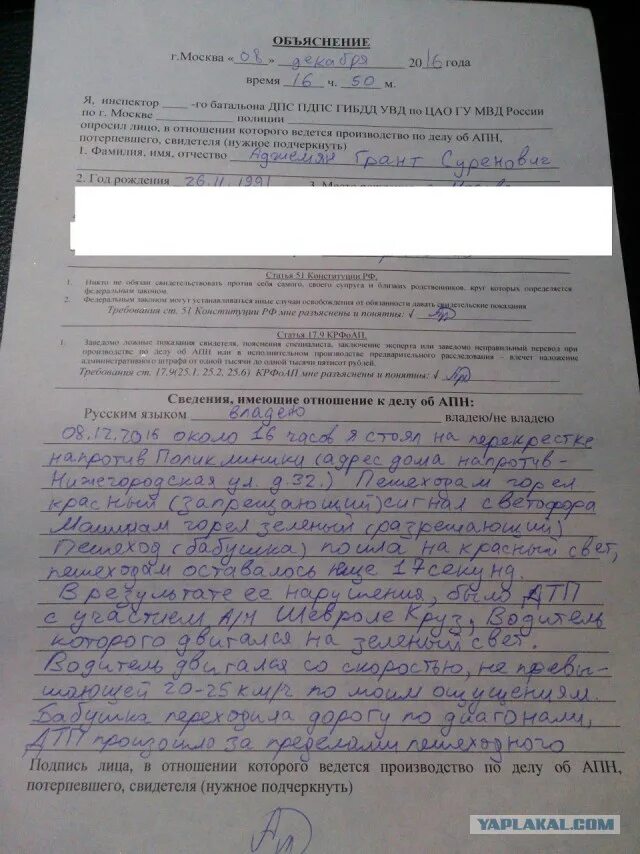 ОБЪЯСНЕНИЕ
г.Москва «08» декабря 2016 года
время 16 ч. 50 м.
Я, инспектор ____ -го батальона ДПС ПДПС ГИБДД УВД по ЦАО ГУ МВД России
по г. Москве ____ полиции ____
опросил лицо, в отношении которого ведется производство по делу об АПН,
потерпевшего, свидетеля (нужное подчеркнуть)
1. Фамилия, имя, отчество Аджемян Грант Суренович
2. Год рождения 26.11.1991 3. Место рождения г. Москва
Статья 51 Конституции РФ.
1. Никто не обязан свидетельствовать против себя самого, своего супруга и близких родственников, круг которых определяется
федеральным законом.
2. Федеральным законом могут устанавливаться иные случаи освобождения от обязанности давать свидетельские показания
Требования ст. 51 Конституции РФ мне разъяснены и понятны:
Статья 17.9 КРФоАП.
1. Заведомо ложные показания свидетеля, пояснения специалиста, заключение эксперта или заведомо неправильный перевод при
производстве по делу об АПН или в исполнительном производстве предварительного расследования – влечет наложение
административного штрафа от одной тысячи до одной тысячи пятисот рублей.
Требования ст. 17.9(25.1, 25.2, 25.6) КРФоАП мне разъяснены и понятны:
Сведения, имеющие отношение к делу об АПН:
Русским языком владею владею/не владею
08.12.2016 около 16 часов я стоял на перекрестке
напротив Поликлиники (адрес дома напротив-
Нижегородская ул. д.32.) Пешеходам горел
красный (запрещающий) сигнал светофора
Машинам горел зеленый (разрешающий)
Пешеход (бабушка) пошла на красный свет,
пешеходам оставалось еще 17 секунд.
В результате ее нарушения, было ДТП
с участием А/М Шевроле Круз, Водитель
которого двигался на зеленый свет.
Водитель двигался со скоростью, не превы-
шающей 20-25 км/ч по моим ощущениям.
Бабушка переходила дорогу по диагонали,
ДТП произошло за пределами пешеходного
Подпись лица, в отношении которого ведется производство по делу об АПН,
потерпевшего, свидетеля (нужное подчеркнуть)
YAPLAKAL.COM